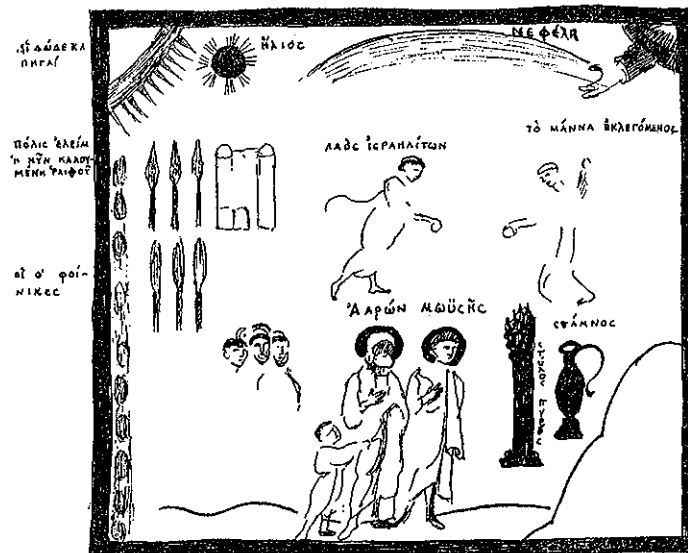 αἱ δώδεκα
πηγαί
ἥλιος
νεφέλη
πόλις ἐλεὶμ
ἡ νῦν καλου
μένη ῥαιφοῦ
λαὸς ἰσραηλίτων
τὸ μάννα ἐκλεγόμενος
αἱ ο' φοί-
νικες
Ἀαρών Μωϋσῆς
στάμνος
στύλος πυρὸς